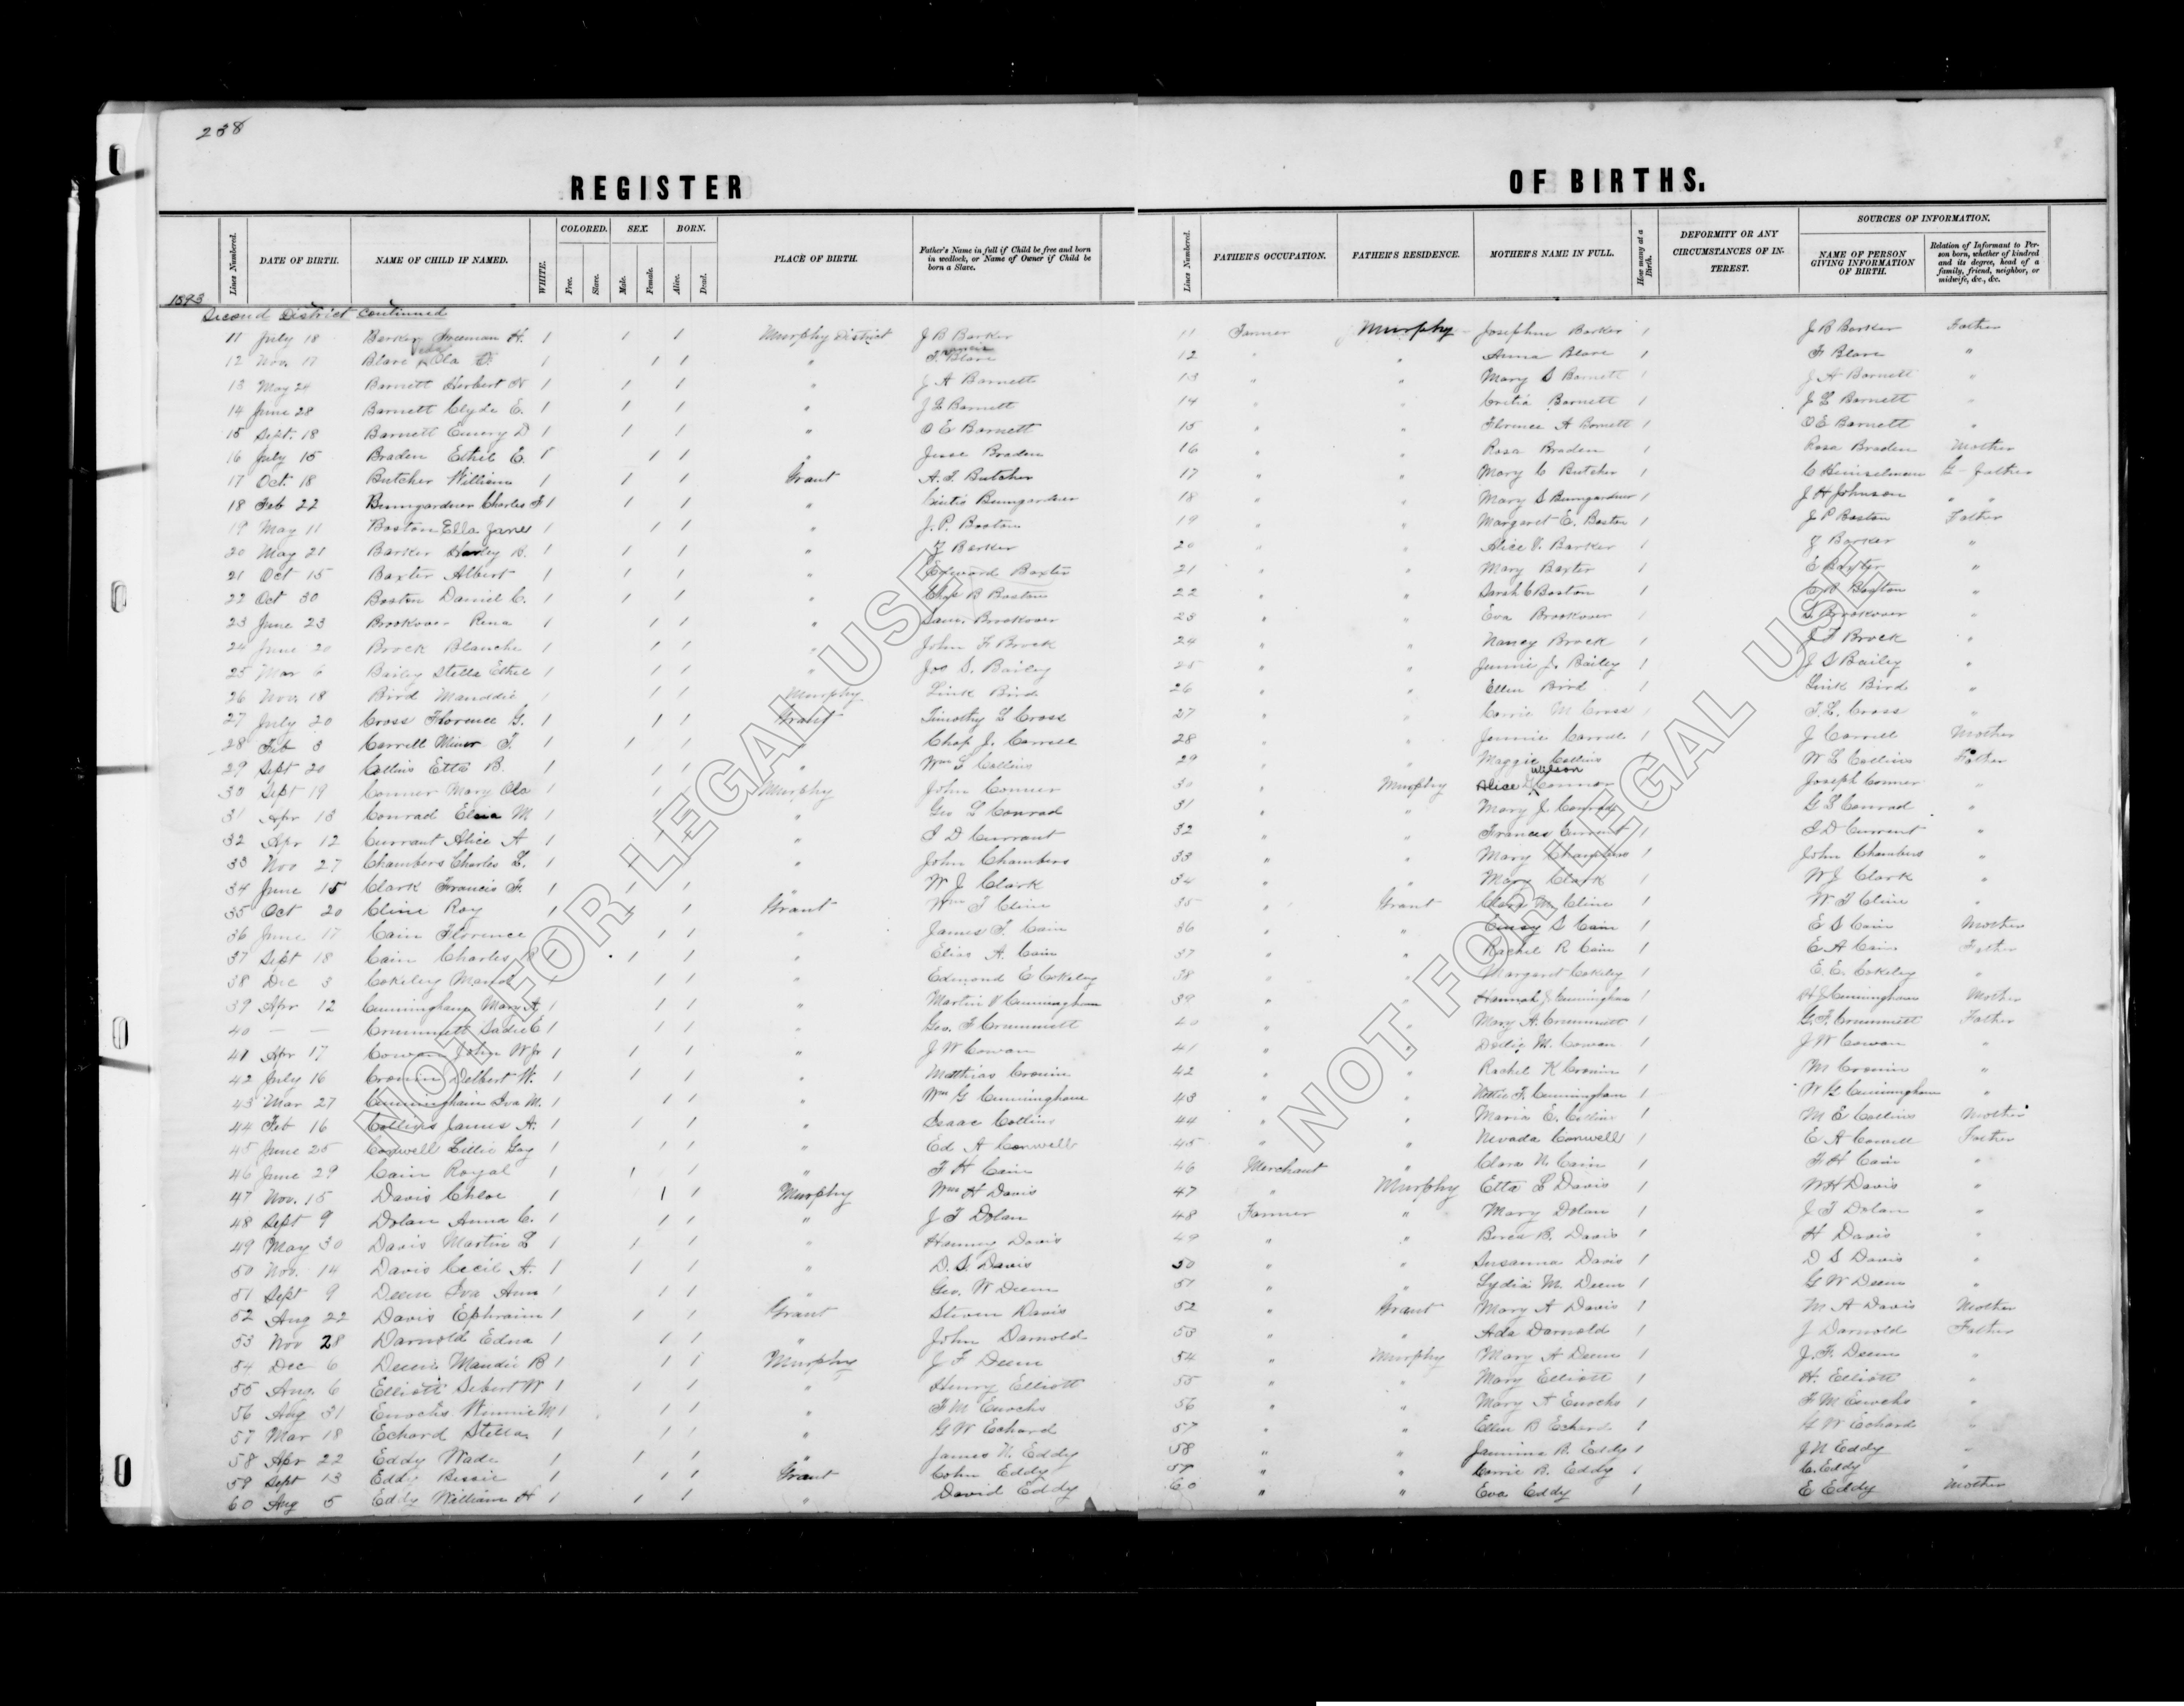 238
REGISTER OF BIRTHS.
Lines Numbered. DATE OF BIRTH. NAME OF CHILD IF NAMED. WHITE. COLORED. Free. Slave. SEX. Male. Female. BORN. Alive. Dead. PLACE OF BIRTH. Father's Name in full if Child be free and born in wedlock, or Name of Owner if Child be born a Slave. Lines Numbered. FATHER'S OCCUPATION. FATHER'S RESIDENCE. MOTHER'S NAME IN FULL. How many at a Birth. DEFORMITY OR ANY CIRCUMSTANCES OF INTEREST. SOURCES OF INFORMATION. NAME OF PERSON GIVING INFORMATION OF BIRTH. Relation of Informant to Person born, whether of kindred and its degree, head of a family, friend, neighbor, or midwife, &c., &c.
1893
Second District Continued
11 July 18 Barker Freeman H. 1 1 1 Murphy District J B Barker 11 Farmer Murphy Josephine Barker 1 J B Barker Father
12 Nov. 17 Blare Ola 1 1 1 " F. Blare 12 " " Anna Blare 1 F Blare "
13 May 28 Barnett Herbert N 1 1 1 " J A Barnett 13 " " Mary S Barnett 1 J A Barnett "
14 June 28 Barnett Clyde E. 1 1 1 " J L Barnett 14 " " Barnett 1 J L Barnett "
15 Sept. 18 Barnett Emery D 1 1 1 " O E Barnett 15 " " Florence A Barnett 1 O E Barnett "
16 July 15 Braden Ethel E. 1 1 1 " Jesse Braden 16 " " Rosa Braden 1 Rosa Braden Mother
17 Oct. 18 Butcher William 1 1 1 Grant A. F. Butcher 17 " " Mary C Butcher 1 C Heinselman G-father
18 Feb 22 Bumgardner Charles F 1 1 1 " Bumgardner 18 " " Mary S Bumgardner 1 J H Johnson " "
19 May 11 Boston Ella Jane 1 1 1 " J. P. Boston 19 " " Margaret E. Boston 1 J P Boston Father
20 May 21 Barker Harley B. 1 1 1 " Z Barker 20 " " Alice V. Barker 1 Z Barker "
21 Oct 15 Baxter Albert 1 1 1 " Edward Baxter 21 " " Mary Baxter 1 E Baxter "
22 Oct 30 Boston Daniel C. 1 1 1 " Chas B Boston 22 " " Sarah C Boston 1 C B Boston "
23 June 23 Brookover Rena 1 1 1 " Sam. Brookover 23 " " Eva Brookover 1 S Brookover "
24 June 20 Brock Blanche 1 1 1 " John F Brock 24 " " Nancy Brock 1 J F Brock "
25 Mar 6 Bailey Stella Ethel 1 1 1 " Jos S. Bailey 25 " " Jennie J. Bailey 1 J S Bailey "
26 Nov. 18 Bird 1 1 1 Murphy Link Bird 26 " " Ellen Bird 1 Link Bird "
27 July 20 Cross Florence G. 1 1 1 Grant Timothy L Cross 27 " " Carrie M Cross 1 T. L. Cross "
28 Feb 3 Carrell Minor T. 1 1 1 " Chas J. Carrell 28 " " Jennie Carrell 1 J Carrell Mother
29 Sept 20 Collins Etta B. 1 1 1 " Wm L Collins 29 " " Maggie Collins 1 W L Collins Father
30 Sept 19 Conner Mary Ola 1 1 1 Murphy John Conner 30 " Murphy Alice Wilson Connor 1 Joseph Conner "
31 Apr 13 Conrad M 1 1 1 " Geo L Conrad 31 " " Mary J Conrad 1 G L Conrad "
32 Apr 12 Currant Alice A 1 1 1 " I D Currant 32 " " Frances Currant 1 I D Currant "
33 Nov 27 Chambers Charles L. 1 1 1 " John Chambers 33 " " Mary Chambers 1 John Chambers "
34 June 15 Clark Francis F. 1 1 1 " W J Clark 34 " " Mary Clark 1 W J Clark "
35 Oct 20 Cline Roy 1 1 1 Grant Wm T Cline 35 " Grant Clara M Cline 1 W T Cline "
36 June 17 Cain Florence 1 1 1 " James T. Cain 36 " " S Cain 1 E S Cain Mother
37 Sept 18 Cain Charles R 1 1 1 " Elias A. Cain 37 " " Rachel R Cain 1 E A Cain Father
38 Dec 3 Cokeley 1 1 1 " Edmond E Cokeley 38 " " Margaret Cokeley 1 E. E. Cokeley "
39 Apr 12 Cunningham Mary A 1 1 1 " Martin V Cunningham 39 " " Hannah J Cunningham 1 H J Cunningham Mother
40 — — Crummett Sadie E 1 1 1 " Geo. F Crummett 40 " " Mary A. Crummett 1 G. F. Crummett Father
41 Apr 17 Cowan John W Jr 1 1 1 " J W Cowan 41 " " Dollie M. Cowan 1 J W Cowan "
42 July 16 Cronin Delbert W. 1 1 1 " Matthias Cronin 42 " " Rachel K Cronin 1 M Cronin "
43 Mar 27 Cunningham Iva M. 1 1 1 " Wm G Cunningham 43 " " Nettie F. Cunningham 1 W G Cunningham "
44 Feb 16 Collins James A. 1 1 1 " Isaac Collins 44 " " Maria E. Collins 1 M E Collins Mother
45 June 25 Conwell Lillie Gay 1 1 1 " Ed A Conwell 45 " " Nevada Conwell 1 E A Conwell Father
46 June 29 Cain Royal 1 1 1 " F H Cain 46 Merchant " Clara N. Cain 1 F H Cain "
47 Nov. 15 Davis Chloe 1 1 1 Murphy Wm H Davis 47 " Murphy Etta L Davis 1 W H Davis "
48 Sept 9 Dolan Anna C. 1 1 1 " J T Dolan 48 Farmer " Mary Dolan 1 J T Dolan "
49 May 30 Davis Martin L 1 1 1 " Davis 49 " " B. Davis 1 H Davis "
50 Nov. 14 Davis Cecil A. 1 1 1 " D. S. Davis 50 " " Susanna Davis 1 D S Davis "
51 Sept 9 Deem Iva Ann 1 1 1 " Geo. W Deem 51 " " Lydia M. Deem 1 G W Deem "
52 Aug 22 Davis Ephraim 1 1 1 Grant Steven Davis 52 " Grant Mary A Davis 1 M A Davis Mother
53 Nov 28 Darnold Edna 1 1 1 " John Darnold 53 " " Ada Darnold 1 J Darnold Father
54 Dec 6 Deem Maudie B 1 1 1 Murphy J F Deem 54 " Murphy Mary A Deem 1 J. F. Deem "
55 Aug. 6 Elliott Sebert W 1 1 1 " Henry Elliott 55 " " Mary Elliott 1 H. Elliott "
56 Aug 31 Enochs Winnie M 1 1 1 " F M Enochs 56 " " Mary A Enochs 1 F M Enochs "
57 Mar 18 Echard Stella 1 1 1 " G W Echard 57 " " Ellen B Echard 1 G W Echard "
58 Apr 22 Eddy Wade 1 1 1 " James N. Eddy 58 " " Jemima R. Eddy 1 J N Eddy "
59 Sept 13 Eddy Bessie 1 1 1 Grant Cohn Eddy 59 " " Carrie B. Eddy 1 C. Eddy "
60 Aug 5 Eddy William H 1 1 1 " David Eddy 60 " " Eva Eddy 1 E Eddy Mother
NOT FOR LEGAL USE
NOT FOR LEGAL USE